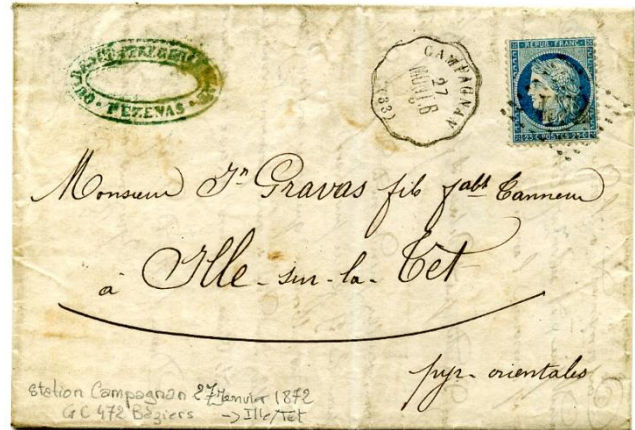 PEZENAS
CAMPAGNAN
27
(33)
REPUB. FRANC.
25 C. POSTES 25 C.
Monsieur Jn Gravas fils fabt Tanneur
à Ille-sur-la-Tét
pyr-orientales
station Campagnan 27 Janvier 1872
GC 472 Béziers -> Ille/Tet